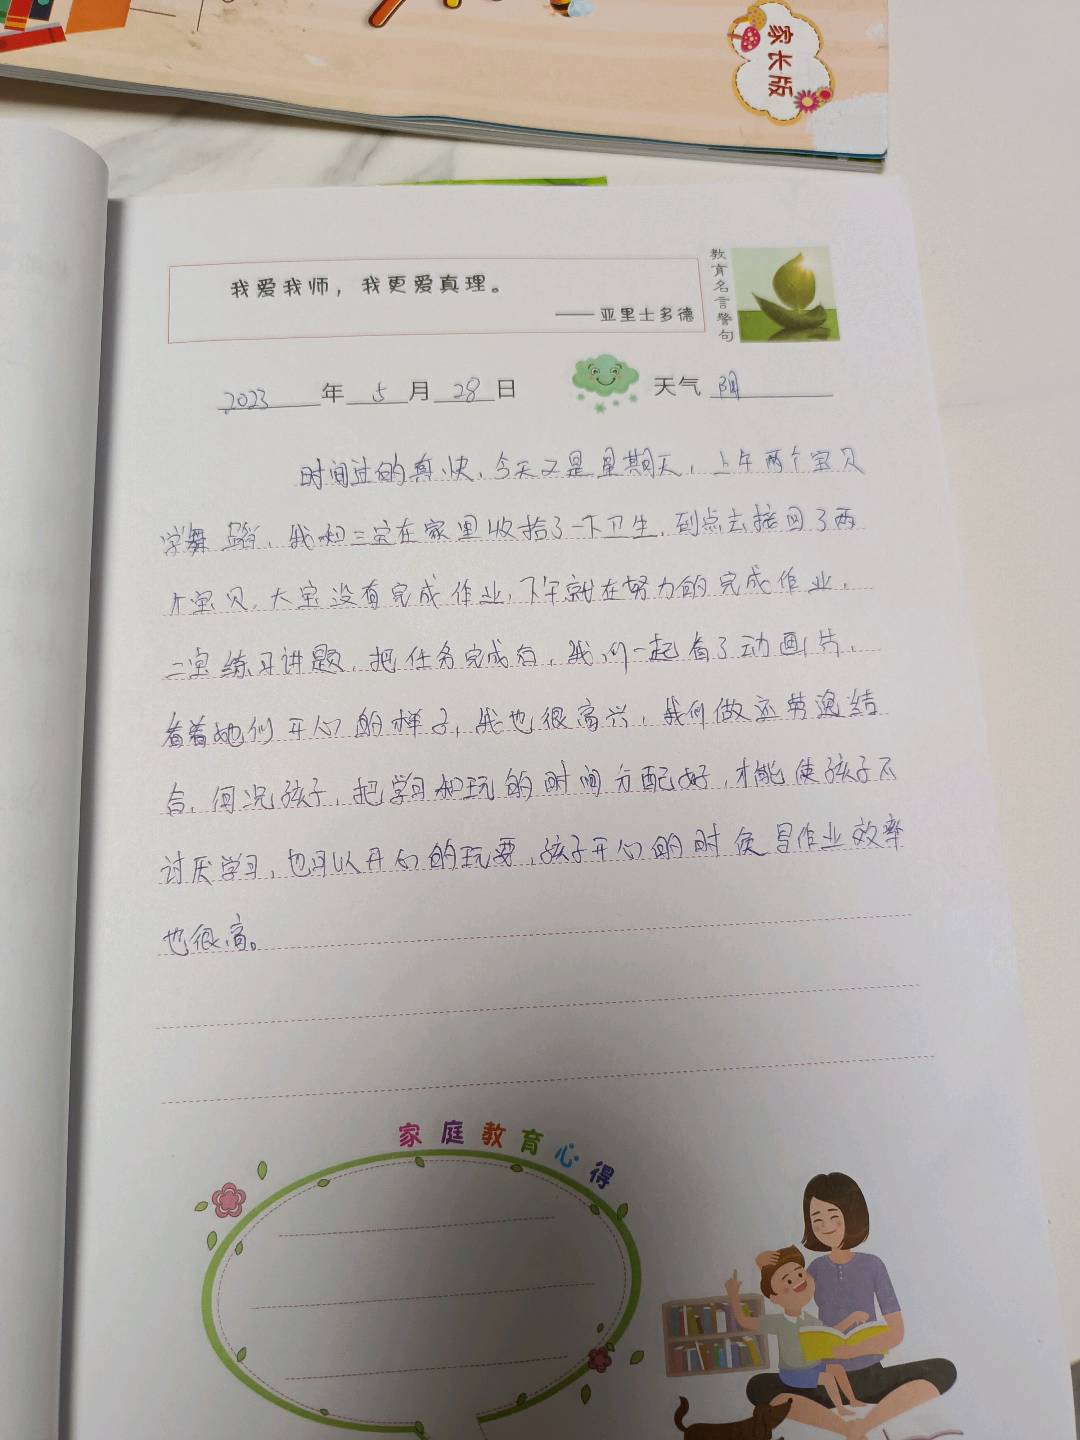 家长版
我爱我师，我更爱真理。
——亚里士多德
教育名言警句
2023年5月28日 天气 阴
时间过的真快，今天又是星期天，上午两个宝贝
学舞蹈，我和三宝在家里收拾了一下卫生，到点去接回了两
个宝贝，大宝没有完成作业，下午就在努力的完成作业，
二宝练习讲题，把任务完成后，我们一起看了动画片，
看着她们开心的样子，我也很高兴，我们做还劳逸结
合，何况孩子，把学习和玩的时间分配好，才能使孩子不
讨厌学习，也可以开心的玩耍，孩子开心的时候写作业效率
也很高。
家庭教育心得